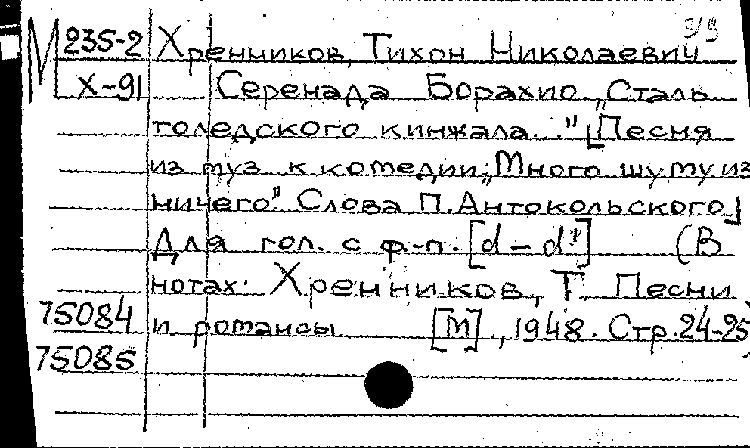 М 235-2 Хренников, Тихон Николаевич
Х-91 Серенада Борахио „Сталь
толедского кинжала..." [Песня
из муз. к комедии „Много шуму из
ничего". Слова П. Антокольского]
Для гол. с ф-п. [d – d²] (В
нотах: Хренников, Т. Песни
75084 и романсы. [М]., 1948. Стр. 24-25)
75085